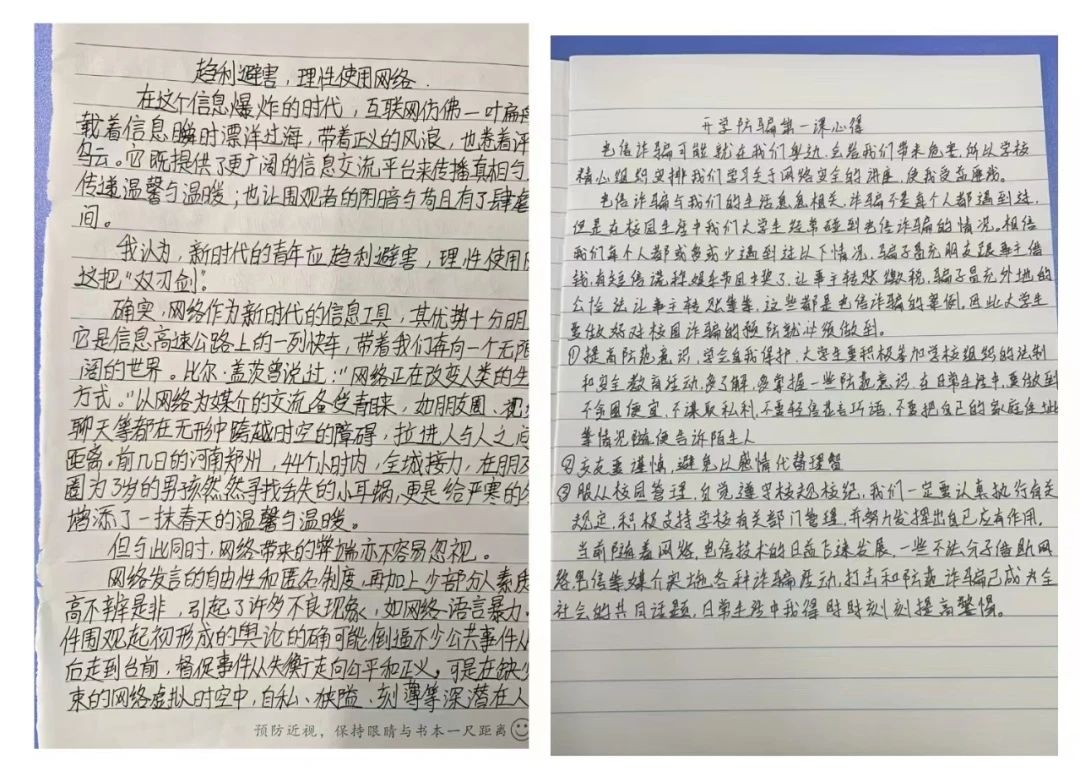 趋利避害，理性使用网络.
在这个信息爆炸的时代，互联网仿佛一叶扁舟
载着信息瞬时漂洋过海，带着正义的风浪，也卷着
乌云。它既提供了更广阔的信息交流平台来传播真相与
传递温馨与温暖；也让围观者的阴暗与苟且有了肆虐
间。
我认为，新时代的青年应趋利避害，理性使用
这把“双刃剑”。
确实，网络作为新时代的信息工具，其优势十分明
它是信息高速公路上的一列快车，带着我们奔向一个无限
阔的世界。比尔·盖茨曾说过：“网络正在改变人类的生
方式。”以网络为媒介的交流备受青睐，如朋友圈、视
聊天等都在无形中跨越时空的障碍，拉进人与人之间
距离。前几日的河南郑州，44个小时内，全城接力，在朋友
圈为3岁的男孩然然寻找丢失的小耳蜗，更是给严寒的冬
增添了一抹春天的温馨与温暖。
但与此同时，网络带来的弊端亦不容易忽视。
网络发言的自由性和匿名制度，再加上少部分人素质
高不辨是非，引起了许多不良现象，如网络语言暴力
件围观起初形成的舆论的确可能倒逼不少公共事件从
后走到台前，督促事件从失衡走向公平和正义。可是在缺少
束的网络虚拟时空中，自私、狭隘、刻薄等深潜在人
预防近视，保持眼睛与书本一尺距离
开学防骗第一课心得
电信诈骗可能就在我们身边，会给我们带来危害，所以学校
精心组织安排我们学习关于网络安全的讲座，使我受益匪浅。
电信诈骗与我们的生活息息相关，诈骗不是每个人都遇到过，
但是在校园生活中我们大学生经常碰到电信诈骗的情况。相信
我们每个人都或多或少遇到过以下情况，骗子冒充朋友跟事主借
钱，有短信谎称娱乐节目中奖了，让事主转账缴税，骗子冒充外地的
公检法让事主转账等等，这些都是电信诈骗的案例，因此大学生
要做好对校园诈骗的预防就必须做到。
①提高防范意识，学会自我保护，大学生要积极参加学校组织的法制
和安全教育活动，多了解，多掌握一些防范意识，在日常生活中，要做到
不贪图便宜，不谋取私利，不要轻信花言巧语，不要把自己的家庭住址
等情况随便告诉陌生人
②交友要谨慎，避免以感情代替理智
③服从校园管理，自觉遵守校规校纪，我们一定要认真执行有关
规定，积极支持学校有关部门管理，并努力发挥出自己应有作用。
当前随着网络，电信技术的日益飞速发展，一些不法分子借助网
络电信等媒介实施各种诈骗活动，打击和防范诈骗已成为全
社会的共同话题，日常生活中我得时时刻刻提高警惕。